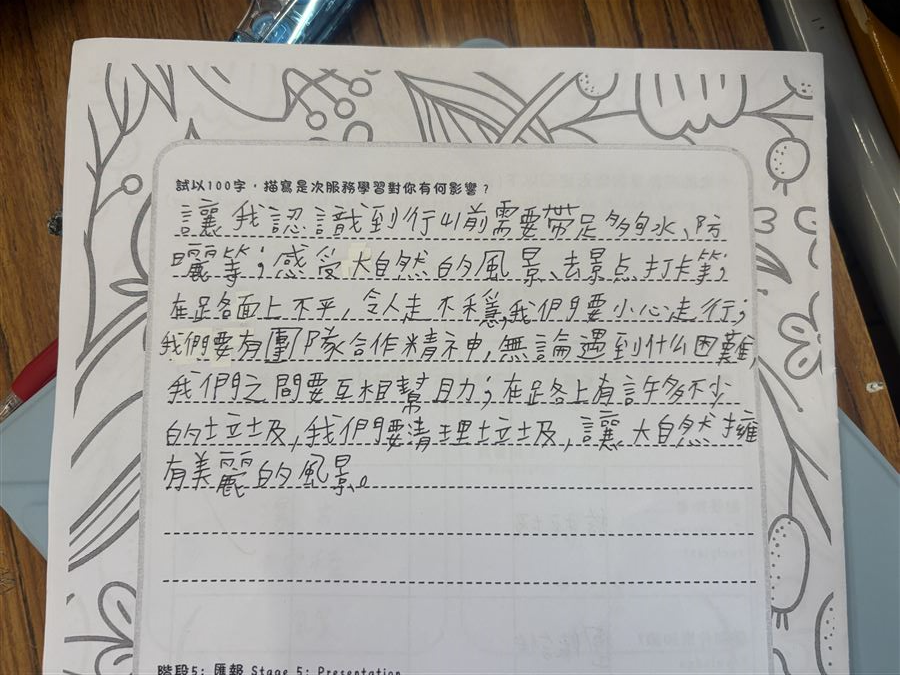 試以100字，描寫是次服務學習對你有何影響？
讓我認識到行山前需要帶足夠水、防
曬等；感受大自然的風景、去景点打卡等；
在路面上不平，令人走不穩，我們要小心走行；
我們要有團隊合作精神，無論遇到什么困難，
我們之間要互相幫助；在路上有許多不少
的垃圾，我們要清理垃圾，讓大自然擁
有美麗的風景。
階段5: 匯報 Stage 5: Presentation